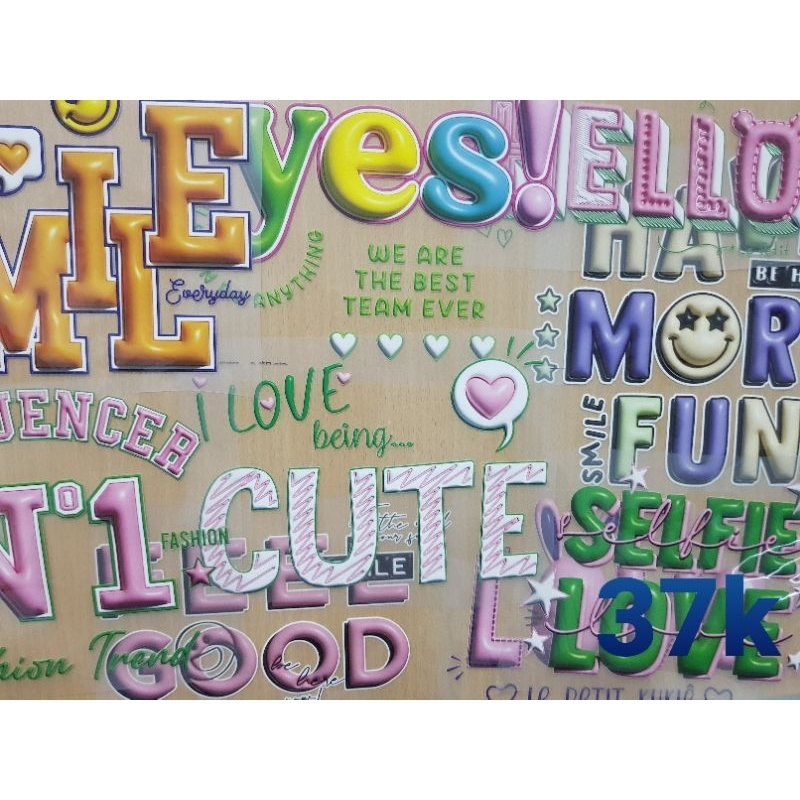 SMILE
Everyday
yes!
ANYTHING
WE ARE
THE BEST
TEAM EVER
ELLO
HA
BE H
MOR
SMILE
FUN
UENCER
I LOVE
being...
CUTE
Nº1
FASHION
FEEL
LE
GOOD
be
here
now!
hion Trend
SELFIE
selfie
LOVE
37k
LE PETIT